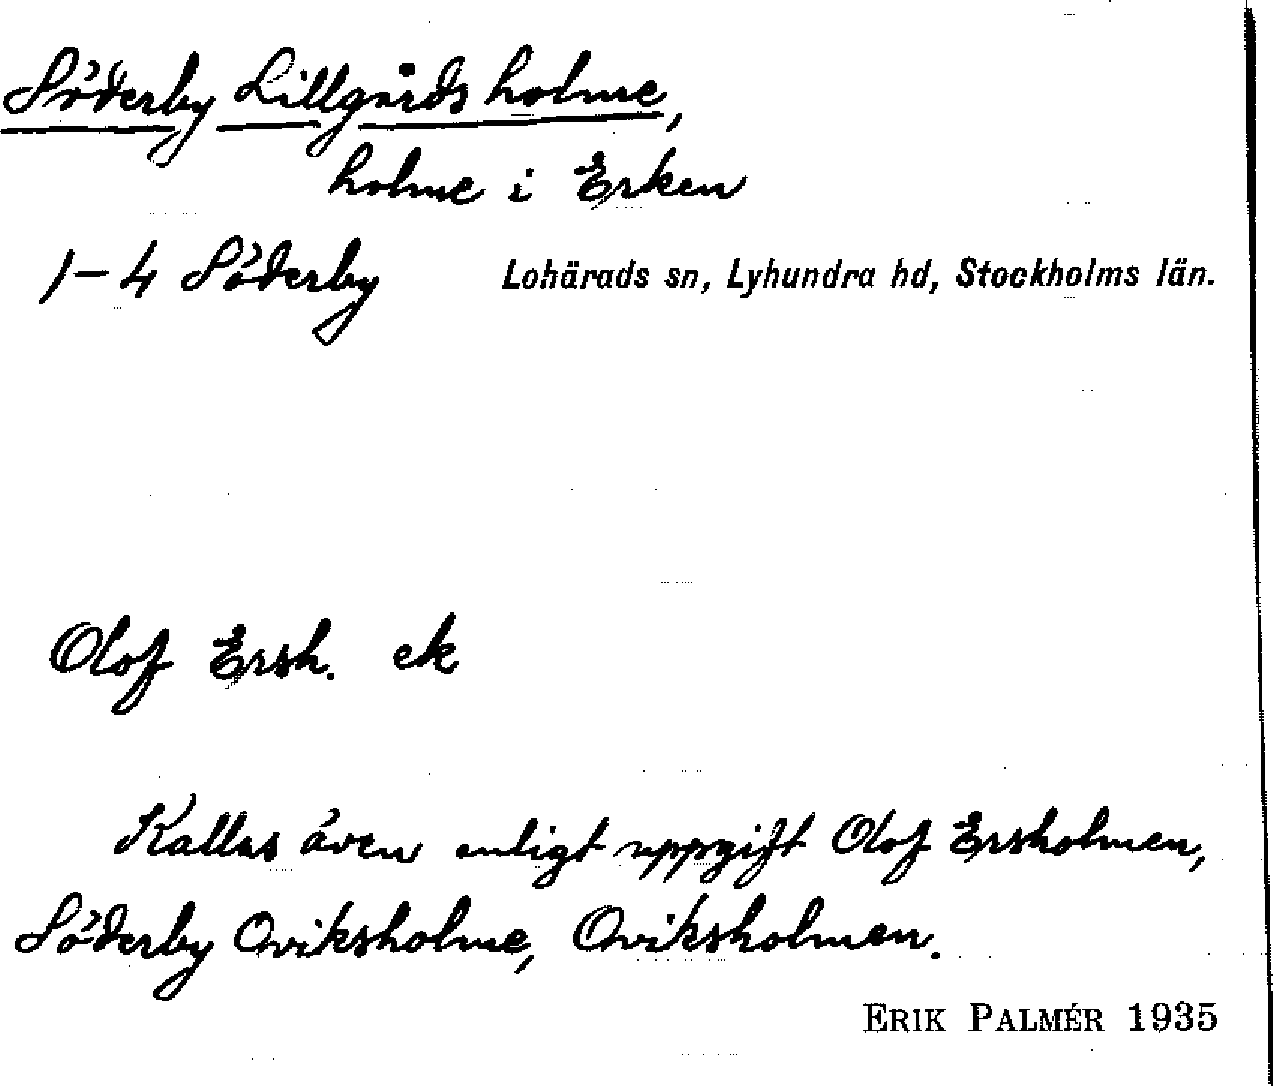 Söderby Lillgårdsholme,
holme i Erken
1-4 Söderby Lohärads sn, Lyhundra hd, Stockholms län.
Olof Ersh. ek
Kallas även enligt uppgift Olof Ersholmen,
Söderby Oviksholme, Oviksholmen.
ERIK PALMÉR 1935